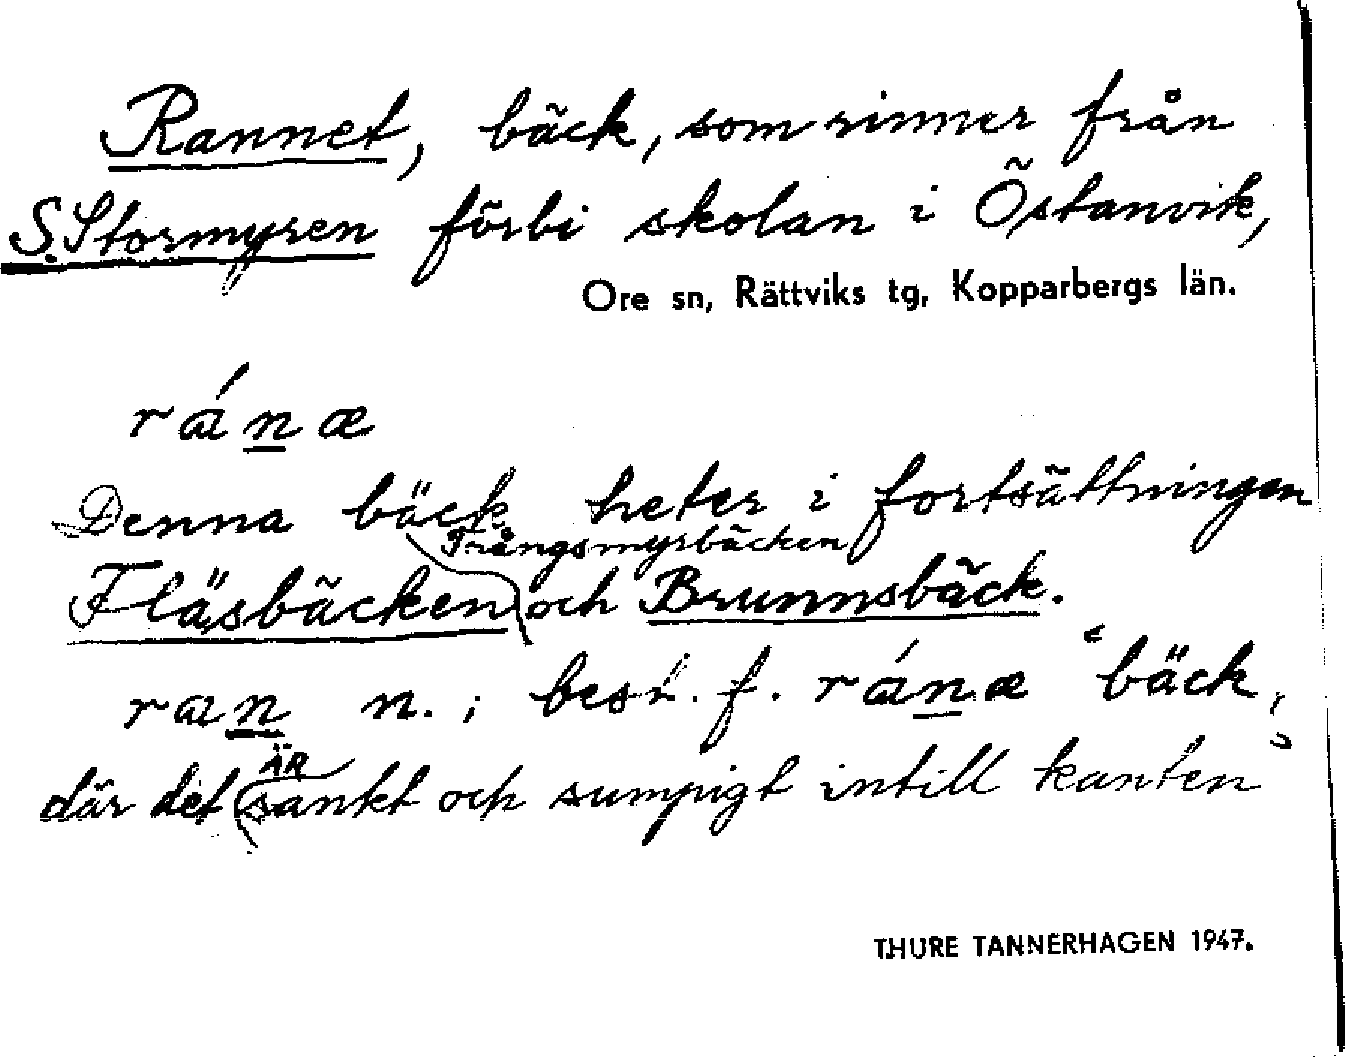 Rannet, bäck, som rinner från
S. Stormyren förbi skolan i Östanvik,
Ore sn, Rättviks tg, Kopparbergs län.
ránæ
Denna bäck heter i fortsättningen
Trångsmyrbäcken
Fläsbäcken och Brunnsbäck.
ran n.; best. f. ránæ "bäck,
ÄR
där det sankt och sumpigt intill kanten"
THURE TANNERHAGEN 1947.